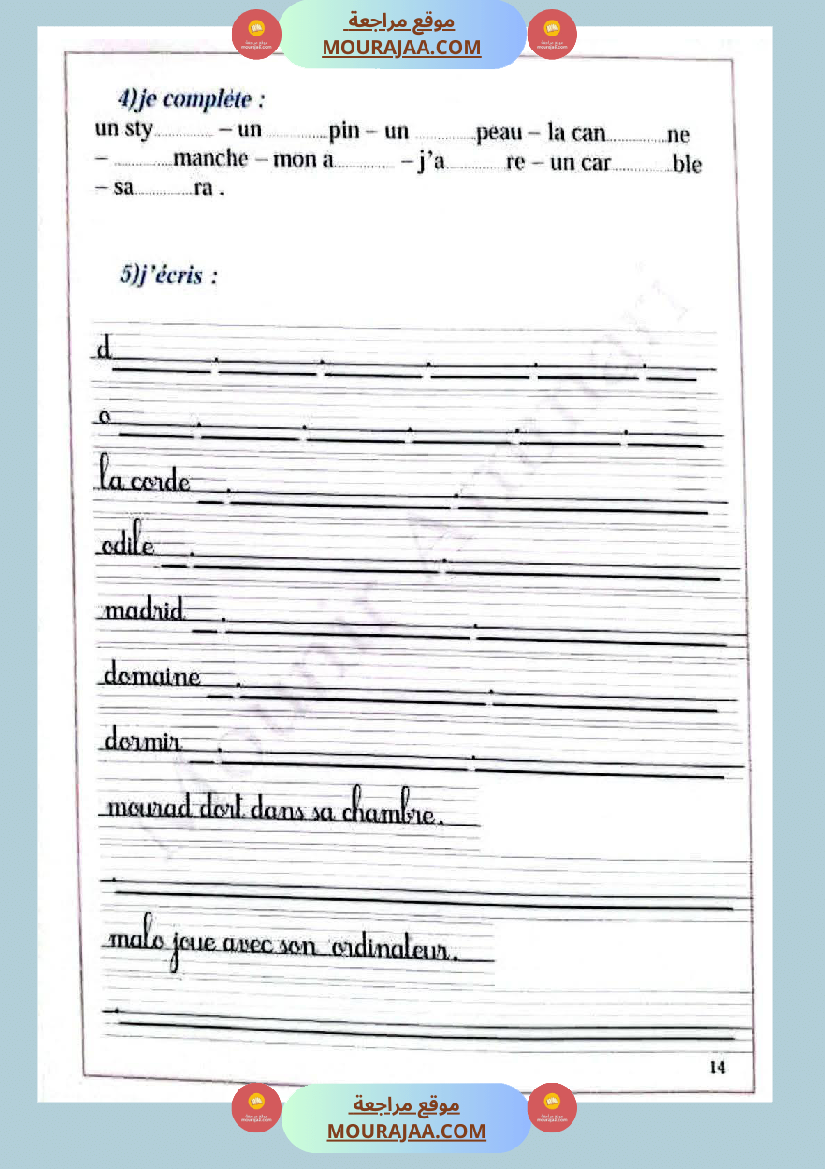 موقع مراجعة
MOURAJAA.COM
4)je complète :
un sty............ – un ............pin – un ............peau – la can............ne
– ............manche – mon a............ – j’a............re – un car............ble
– sa............ra .
5)j’écris :
d
o
la corde
odile
madrid
domaine
dormir
mourad dort dans sa chambre.
malo joue avec son ordinateur.
14
موقع مراجعة
MOURAJAA.COM